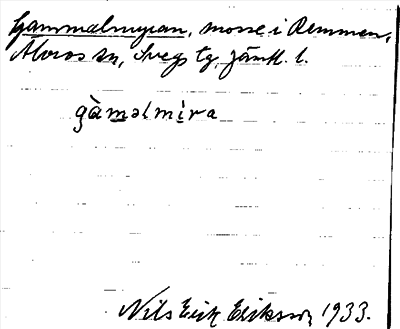 Gammalmyran, mosse i Remmen,
Älvros sn, Svegs tg, Jämtl. l.
gàmalmira
Nils Erik Eriksson 1933.